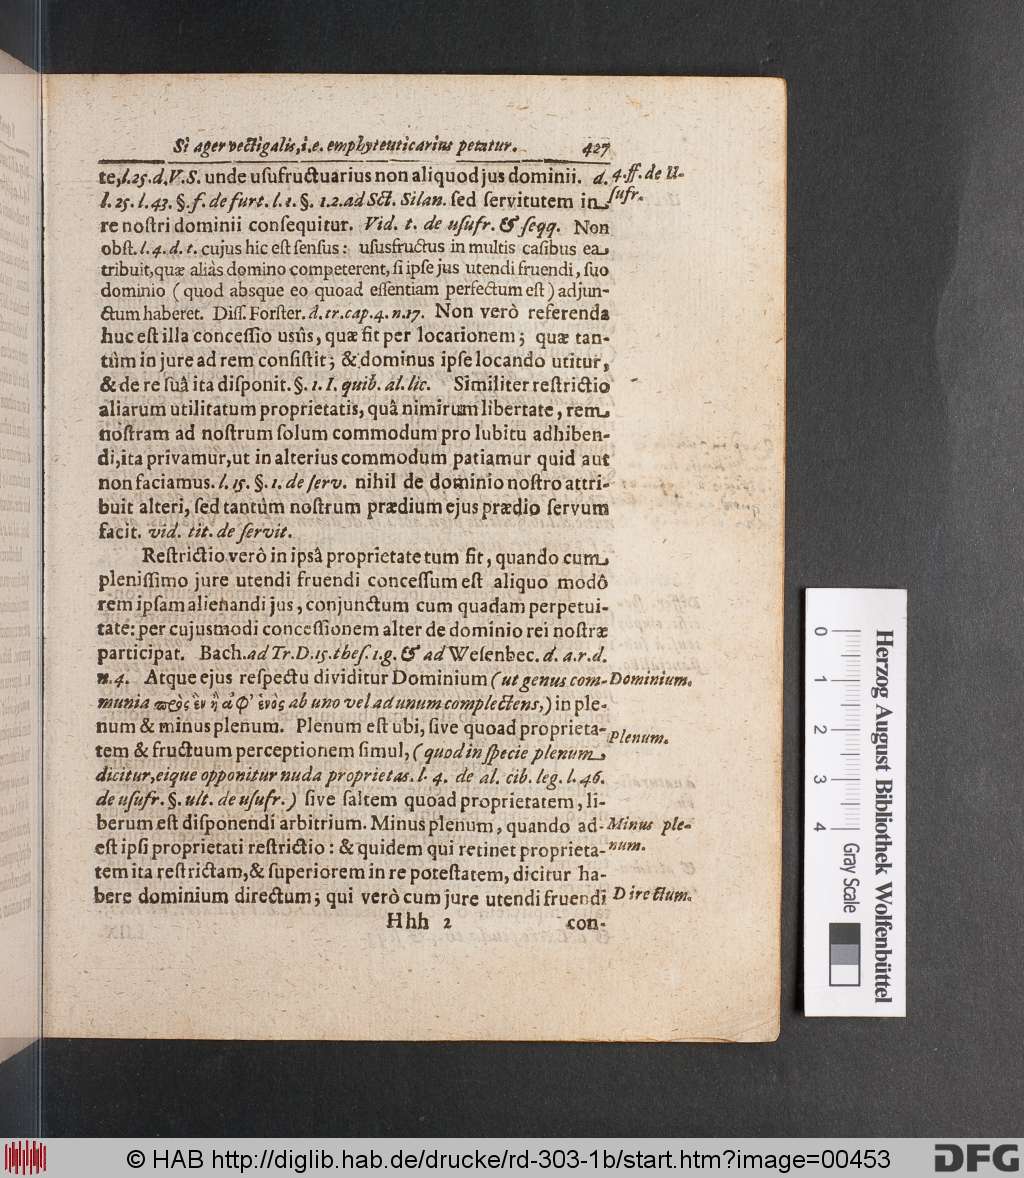 Si ager vectigalis, i.e. emphyteuticarius petatur. 427
te, l. 25. d. V. S. unde usufructuarius non aliquod jus dominii. d. 4. ff. de U-
l. 25. l. 43. §. f. de furt. l. 1. §. 1. 2. ad Sct. Silan. sed servitutem in sufr.
re nostri dominii consequitur. Vid. t. de usufr. & seqq. Non
obst. l. 4. d. t. cujus hic est sensus: ususfructus in multis casibus ea
tribuit, quæ aliàs domino competerent, si ipse jus utendi fruendi, suo
dominio (quod absque eo quoad essentiam perfectum est) adjun-
ctum haberet. Diss. Forster. d. tr. cap. 4. n. 17. Non verò referenda
huc est illa concessio usûs, quæ fit per locationem; quæ tan-
tùm in jure ad rem consistit; & dominus ipse locando utitur,
& de re suâ ita disponit. §. 1. I. quib. al. lic. Similiter restrictio
aliarum utilitatum proprietatis, quâ nimirum libertate, rem
nostram ad nostrum solum commodum pro lubitu adhiben-
di, ita privamur, ut in alterius commodum patiamur quid aut
non faciamus. l. 15. §. 1. de serv. nihil de dominio nostro attri-
buit alteri, sed tantùm nostrum prædium ejus prædio servum
facit. vid. tit. de servit.
Restrictio verò in ipsâ proprietate tum fit, quando cum
plenissimo jure utendi fruendi concessum est aliquo modô
rem ipsam alienandi jus, conjunctum cum quadam perpetui-
tate: per cujusmodi concessionem alter de dominio rei nostræ
participat. Bach. ad Tr. D. 15. thes. 1. g. & ad Wesenbec. d. a. r. d.
n. 4. Atque ejus respectu dividitur Dominium (ut genus com- Dominium.
munia πρὸς ἓν ἢ ἀφ' ἑνὸς ab uno vel ad unum complectens,) in ple-
num & minus plenum. Plenum est ubi, sive quoad proprieta- Plenum.
tem & fructuum perceptionem simul, (quod in specie plenum
dicitur, eique opponitur nuda proprietas. l. 4. de al. cib. leg. l. 46.
de usufr. §. ult. de usufr.) sive saltem quoad proprietatem, li-
berum est disponendi arbitrium. Minus plenum, quando ad- Minus ple-
est ipsi proprietati restrictio: & quidem qui retinet proprieta- num.
tem ita restrictam, & superiorem in re potestatem, dicitur ha-
bere dominium directum; qui verò cum jure utendi fruendi Directum.
Hhh 2 con-
Herzog August Bibliothek Wolfenbüttel
0 1 2 3 4 Gray Scale
© HAB http://diglib.hab.de/drucke/rd-303-1b/start.htm?image=00453
DFG